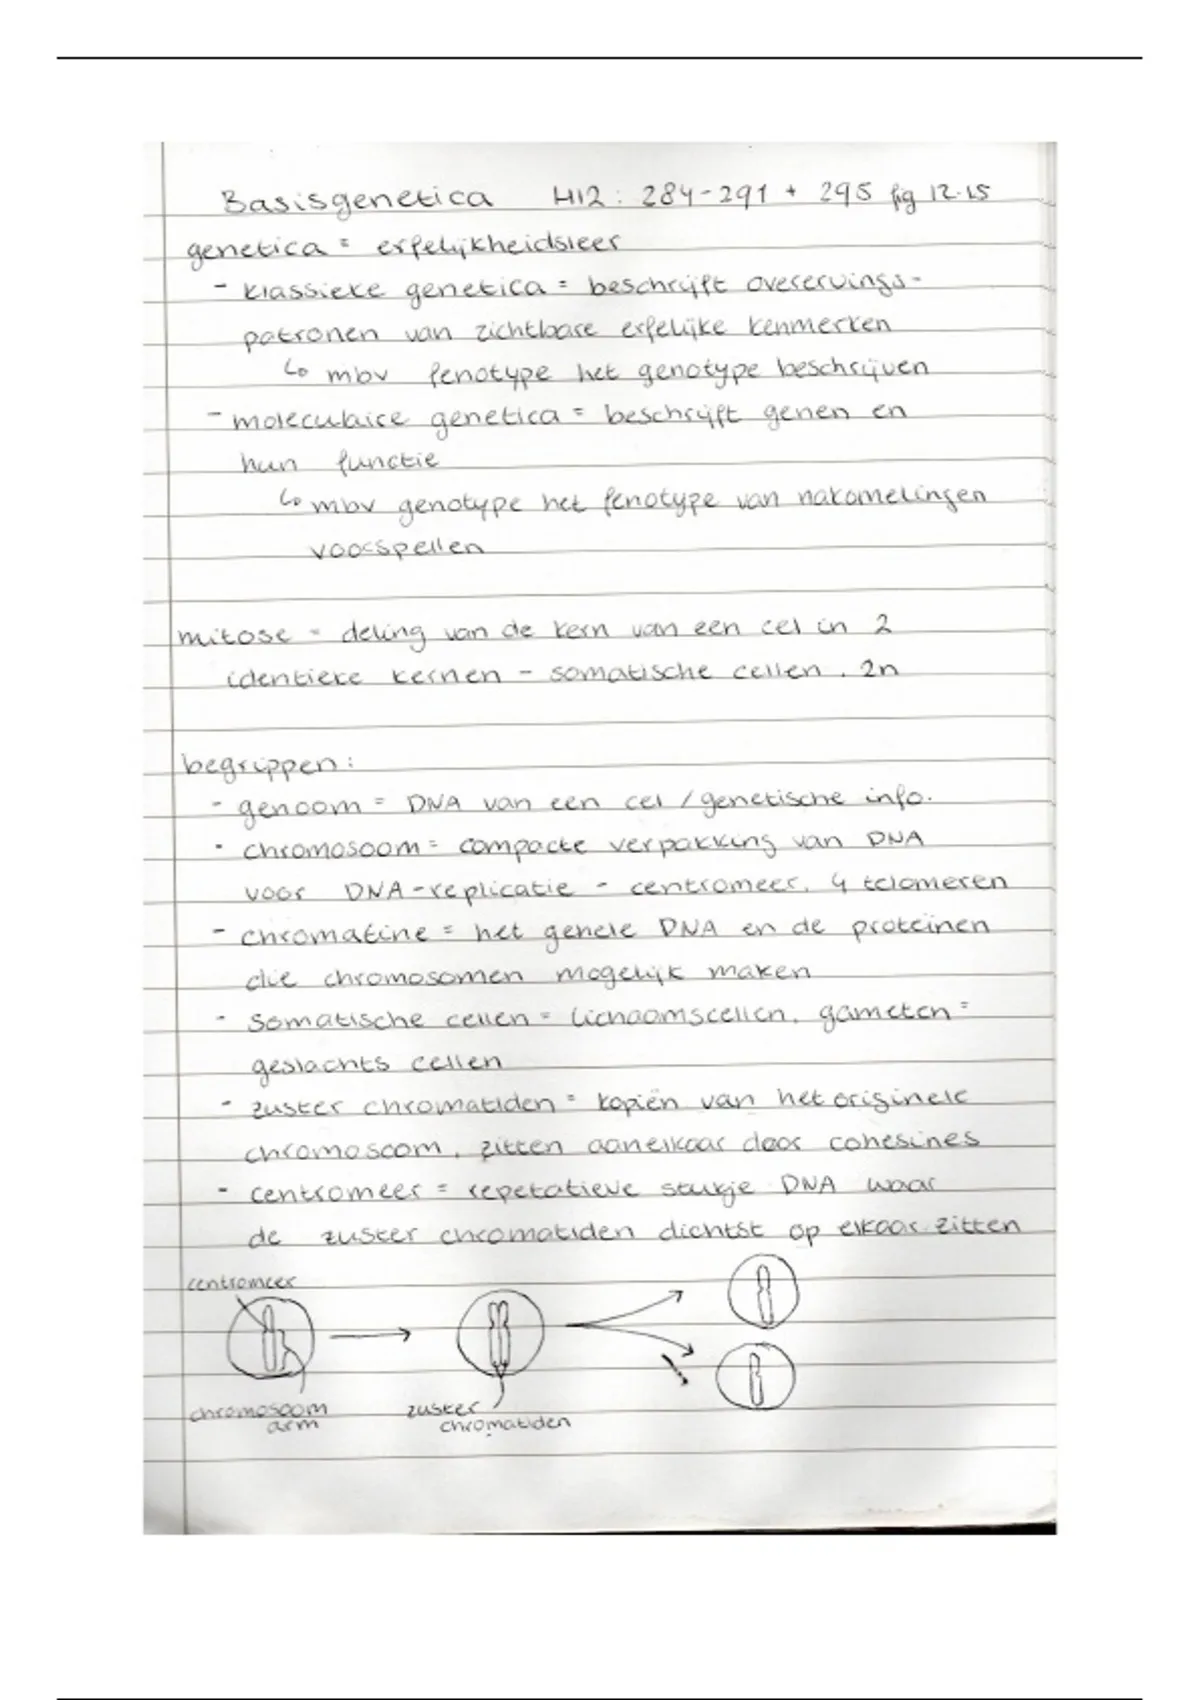 Basisgenetica H12: 284-291 + 295 fig 12.15
genetica = erfelijkheidsleer
- klassieke genetica = beschrijft overervings-
patronen van zichtbare erfelijke kenmerken
↳ mbv fenotype het genotype beschrijven
- moleculaire genetica = beschrijft genen en
hun functie
↳ mbv genotype het fenotype van nakomelingen
voorspellen
mitose = deling van de kern van een cel in 2
identieke kernen - somatische cellen. 2n
begrippen:
- genoom = DNA van een cel / genetische info.
- chromosoom = compacte verpakking van DNA
voor DNA-replicatie - centromeer, 4 telomeren
- chromatine = het gehele DNA en de proteïnen
die chromosomen mogelijk maken
- somatische cellen = lichaamscellen, gameten =
geslachts cellen
- zuster chromatiden = kopiën van het originele
chromosoom, zitten aanelkaar door cohesines
- centromeer = repetatieve stukje DNA waar
de zuster chromatiden dichtst op elkaar zitten
centromeer
chromosoom
arm
zuster
chromatiden